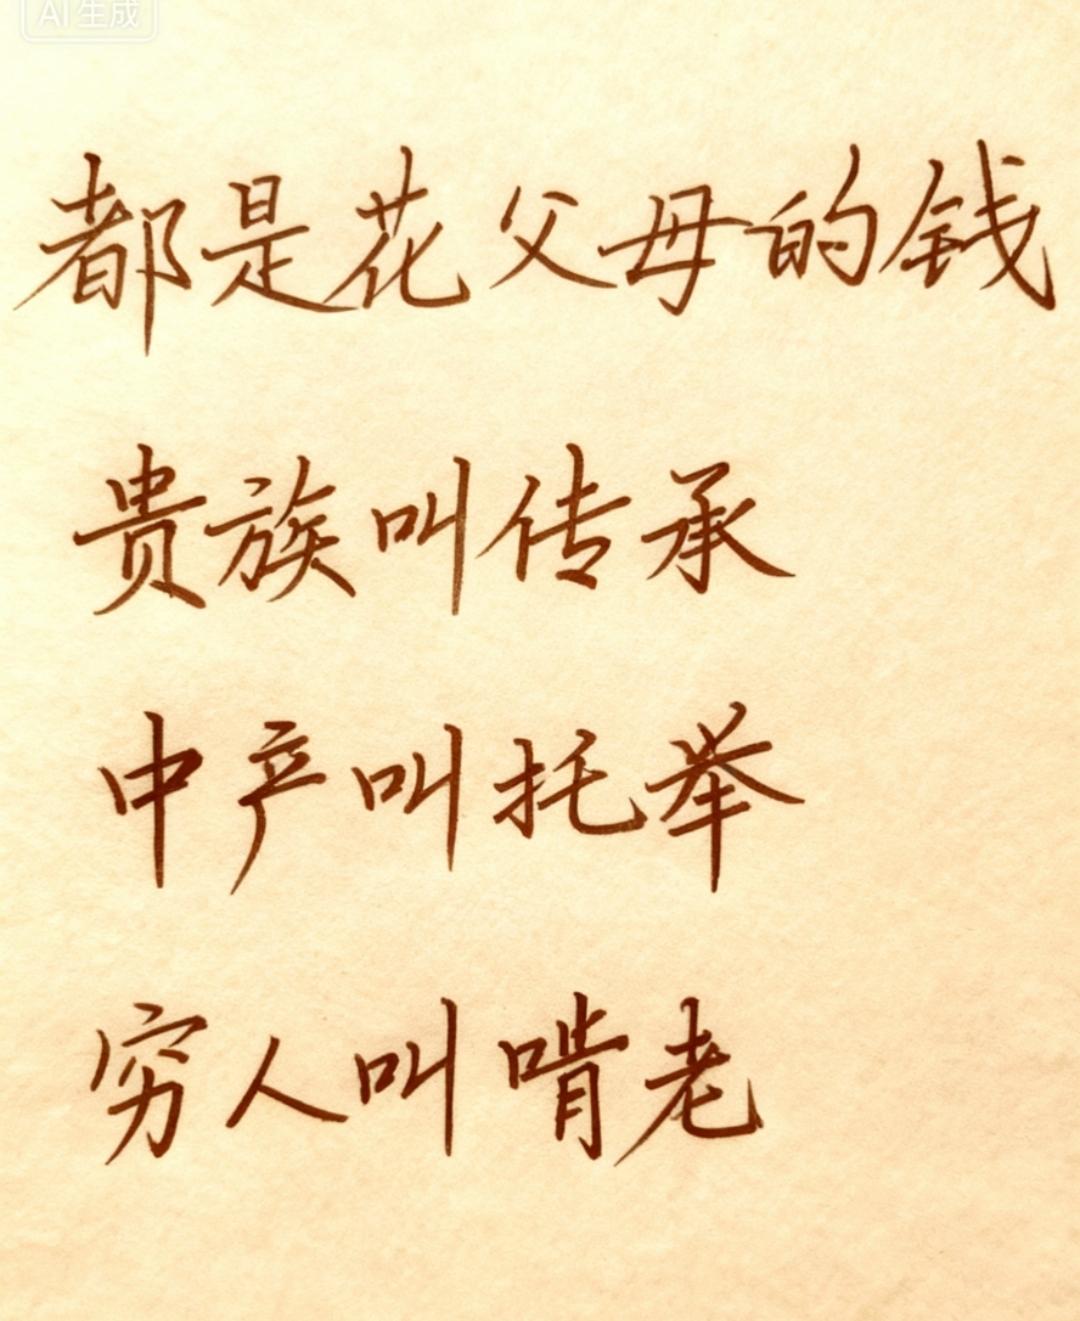 AI生成
都是花父母的钱
贵族叫传承
中产叫托举
穷人叫啃老